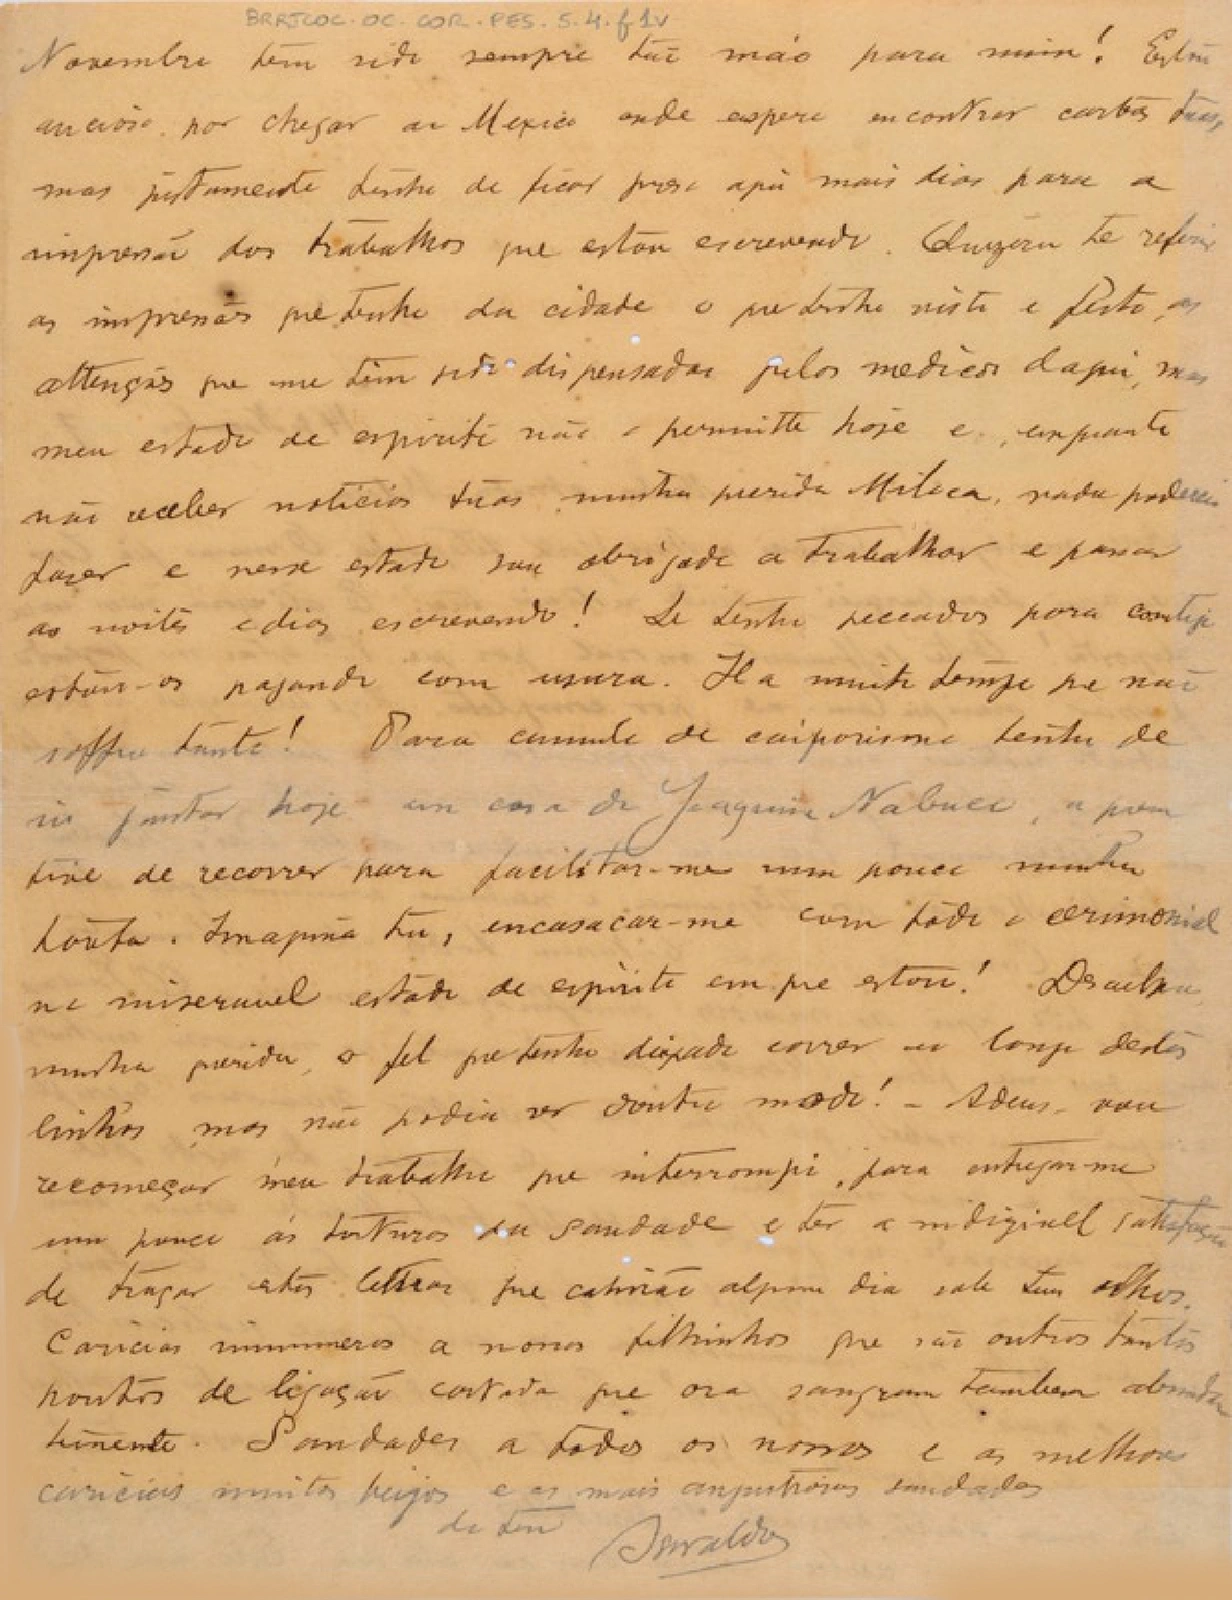 BRRJCOC.OC.COR.PES.5.4.f1v
Novembro tem sido sempre tão máo para mim! Estou
ancioso por chegar ao Mexico onde espero encontrar cartas tuas,
mas justamente tenho de ficar preso aqui mais dias para a
impressão dos trabalhos que estou escrevendo. Quizera te referir
as impressões que tenho da cidade o que tenho visto e feito, as
attenções que me têm sido dispensadas pelos medicos daqui, mas
meu estado de espirito não o permitte hoje e, emquanto
não receber noticias tuas minha querida Miloca, nada poderei
fazer e nesse estado sou obrigado a trabalhar e passar
as noites e dias escrevendo! Se tenho peccados para comtigo
estou-os pagando com usura. Ha muito tempo que não
soffro tanto! Para cumulo de caiporismo tenho de
ir jantar hoje em casa do Joaquim Nabuco, a quem
tive de recorrer para facilitar-me um pouco minha
tarefa. Imagina tu, encasacar-me com todo o cerimonial
no miseravel estado de espirito em que estou! Desculpa,
minha querida, o fel que tenho deixado correr ao longo destas
linhas mas não podia ser d'outro modo! - Adeus, vou
recomeçar meu trabalho que interrompi, para entregar-me
um pouco ás torturas da saudade e ter a indizivel satisfação
de traçar estas letras que cahirão algum dia sob teus olhos.
Caricias innumeras a nossos filhinhos que são outros tantos
pontos de ligação cortada que ora sangram tambem abundan
temente. Saudades a todos os nossos e as melhores
caricias muitos beijos e as mais angustiosas saudades
do teu
Oswaldo